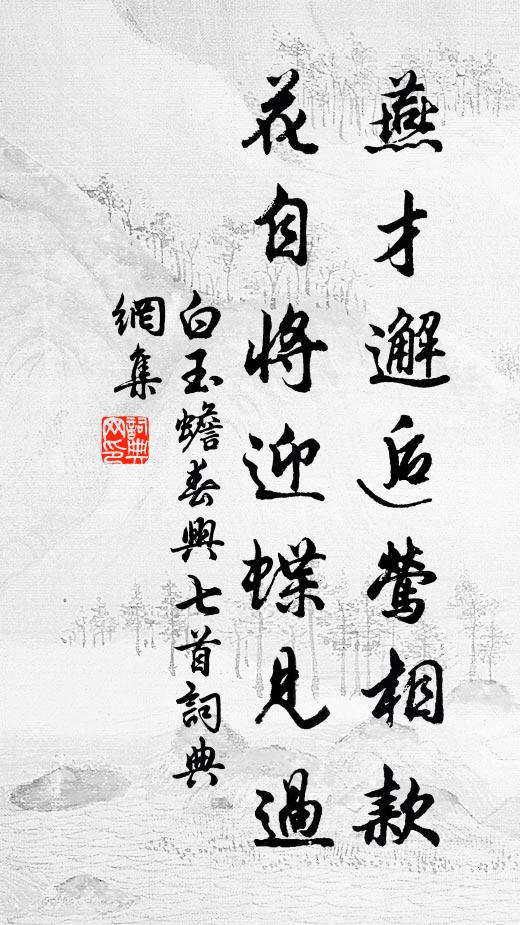 燕才邂逅鶯相款
花自將迎蝶見過
白玉蟾春興七首詞典
網集
詞典
网印